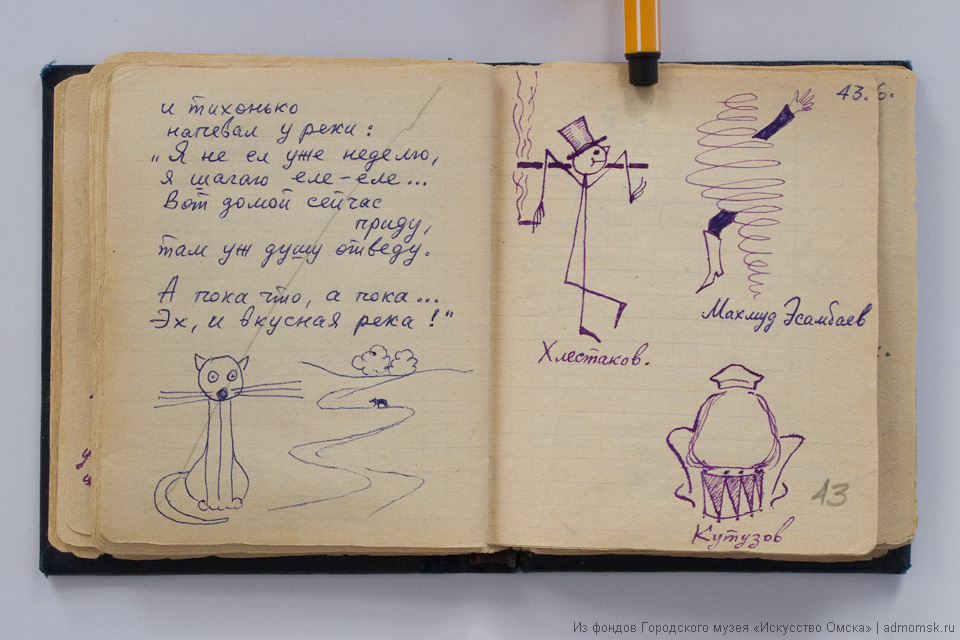 и тихонько
напевал у реки:
„Я не ел уже неделю,
я шагаю еле-еле...
Вот домой сейчас
приду,
там уж душу отведу.
А пока что, а пока...
Эх, и вкусная река!"
43.б.
Хлестаков.
Махмуд Эсамбаев
Кутузов
43
Из фондов Городского музея «Искусство Омска» | admomsk.ru